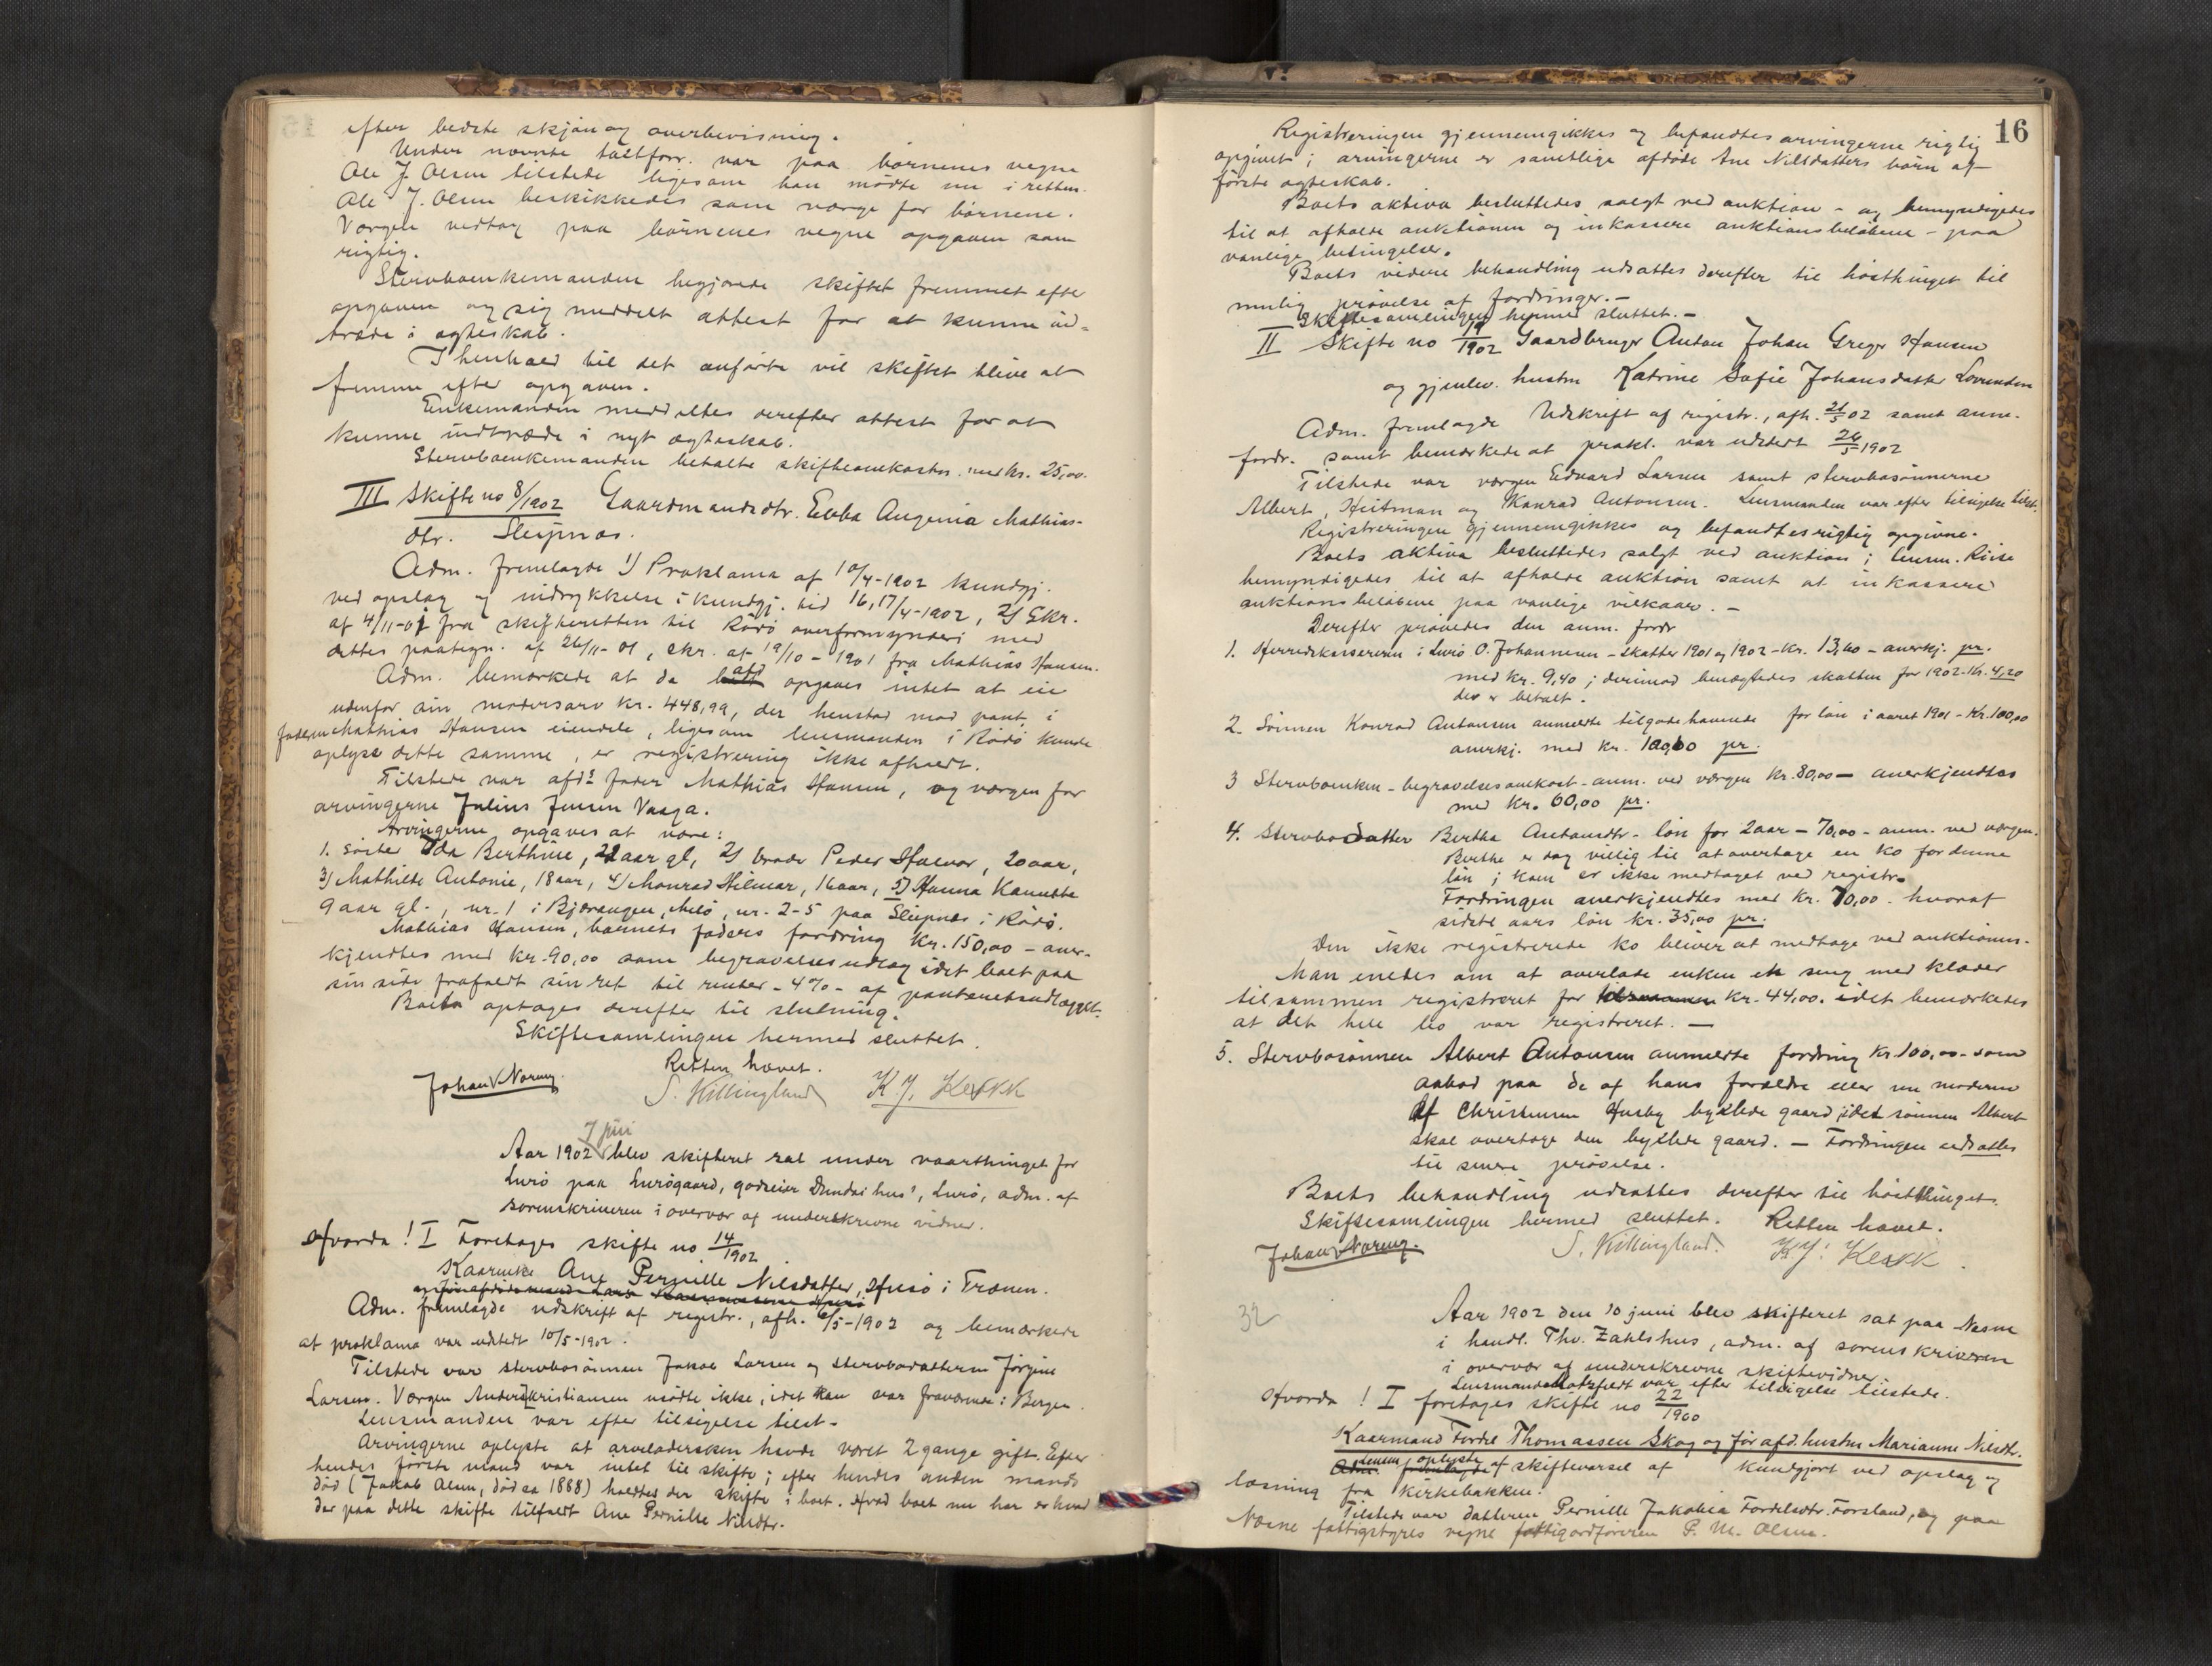 efter bedste skjøn og overbevisning.
Under nævnte taltforr. var paa børnenes vegne
Ole J. Olsen tilstede ligesom han mødte nu i retten.
Ole J. Olsen beskikkedes som værge for børnene.
Værgen vedtog paa børnenes vegne opgaven som
rigtig.
Stervboenkemanden begjærede skiftet fremmet efter
opgaven og sig meddelt attest for at kunne ind-
træde i ægteskab.
I henhold til det anførte vil skiftet blive at
fremme efter opgaven.
Enkemanden meddeltes derefter attest for at
kunne indtræde i nyt ægteskab.
Stervboenkemanden betalte skifteomkostn. med kr. 25,00.
III Skifte no 8/1902 Gaardmandsdtr. Ebba Augenia Mathias-
dtr. Sleipnes.
Adm. fremlagde 1) Proklama af 10/4-1902 kundgj.
ved opslag og indrykkelse i kundgj. tid 16,17/4-1902, 2) Skr.
af 4/11-01 fra skifteretten til Rødø overformynderi med
dettes paategn. af 26/11-01, skr. af 19/10-1901 fra Mathias Hansen.
Adm. bemærkede at da afd opgaves intet at eie
udenfor sin mødrearv kr. 448,99, der henstod mod pant i
faderen Mathias Hansen eiendele, ligesom lensmanden i Rødø kunde
oplyse dette samme, er registrering ikke afholdt.
Tilstede var afd.s fader Mathias Hansen, og værgen for
arvingerne Julius Jensen Vaaga.
Arvingerne opgaves at være:
1. søster Oda Berthine, 22 aar gl, 2) broder Peder Halvor, 20 aar,
3) Mathilde Antonie, 18 aar, 4) Monrad Hilmar, 16 aar, 5) Hanna Kanutte
9 aar gl., nr. 1 i Bjærangen, Melø, nr. 2-5 paa Sleipnes i Rødø.
Mathias Hansen, barnets faders fordring kr. 150,00 - aner-
kjendtes med kr. 90,00 som begravelsesudlæg idet boet paa
sin side frafaldt sin ret til renter - 4% - af pantearvsudlægget.
Boets optages derefter til slutning.
Skiftesamlingen hermed sluttet.
Retten hævet.
Johan Noruy. S. Killingland K. J. Heskk
7 juni
Aar 1902 blev skifteret sat under vaarthinget for
Lurø paa Lurøgaard, godseier Dundas hus, Lurø, adm. af
sorenskriveren i overvær af underskrevne vidner.
Hvorda! I Foretages skifte no 14/1902
Kaarenke Ane Pernille Nilsdatter, Husø i Trænen.
Adm. fremlagde udskrift af registr., afh. 6/5-1902 og bemærkede
at proklama var udstedt 10/5-1902.
Tilstede var stervbosønnen Jakob Larsen og stervbodatteren Jørgine
Larsen. Værgen Anders Kristiansen mødte ikke, idet han var fraværende i Bergen.
Lensmanden var efter tilsigelse tilst.
Arvingerne oplyste at arveladersken havde været 2 gange gift. Efter
hendes første mand var intet til skifte; efter hendes anden mands
død (Jakob Olsen, død ca 1888) holdtes der skifte i boet. Hvad boet nu har er hvad
der paa dette skifte tilfaldt Ane Pernille Nilsdtr.
16
Registreringen gjennemgikkes og befandtes arvingerne rigtig
opgivet; arvingerne er samtlige afdøde Ane Nilsdatters børn af
første ægteskab.
Boets aktiva besluttedes solgt ved auktion - og bemyndigedes
til at afholde auktionen og inkassere auktionsbeløbene - paa
vanlige betingelser.
Boets videre behandling udsattes derefter til høstthinget til
mulig prøvelse af fordringer. -
Skiftesamlingen hermed sluttet. -
II Skifte no 19/1902 Gaardbruger Anton Johan Greger Hansen
og gjenlev. hustru Katrine Sofie Johansdatter Lovunden
Adm. fremlagde Udskrift af registr., afh. 21/5 02 samt anm.
fordr. samt bemærkede at prokl. var udstedt 26/5 1902
Tilstede var værgen Edvard Larsen samt stervbosønnerne
Albert, Heitman og Konrad Antonsen. Lensmanden var efter tilsigelse tilst.
Registreringen gjennemgikkes og befandtes rigtig opgivne.
Boets aktiva besluttedes solgt ved auktion; lensm. Riise
bemyndigedes til at afholde auktion samt at inkassere
auktionsbeløbene paa vanlige vilkaar. -
Derefter prøvedes den anm. fordr
1. Herredskassereren i Lurø O. Johannesen - Skatter 1901 og 1902 - Kr. 13,60 - anerkj. pr.
med kr. 9,40; derimod benægtedes skatten for 1902 - Kr. 4,20
der er betalt.
2. Sønnen Konrad Antonsen anmeldte tilgodehavende for løn i aaret 1901 - Kr. 100,00
anerkj. med kr. 100,00 pr.
3 Stervboenken - begravelsesomkost. - anm. ved værgen Kr. 80,00 - anerkjendtes
med Kr. 60,00 pr.
4. Stervbodatter Berthe Antonsdtr. - løn for 2 aar - 70,00 - anm. ved værgen.
Berthe er dog villig til at overtage en ko for denne
løn; koen er ikke medtaget ved registr.
Fordringen anerkjendtes med Kr. 70,00. hvoraf
sidste aars løn kr. 35,00 pr.
Den ikke registrerede ko bliver at medtage ved auktionen.
Man enedes om at overlade enken en seng med klæder
tilsammen registreret for Kr. 44,00. idet bemærkedes
at det hele bo var registreret. -
5. Stervbosønnen Albert Antonsen anmeldte fordring Kr. 100,00 - som
aabod paa de af hans forældre eller nu moderen
af Christensen Husby byxlede gaard, idet sønnen Albert
skal overtage den byxlede gaard. - Fordringen udsattes
til senere prøvelse.
Boets behandling udsattes derefter til høstthinget.
Skiftesamlingen hermed sluttet. Retten hævet.
Johan Noruy. S. Killingland. K. J. Heskk.
32
Aar 1902 den 10 juni blev skifteret sat paa Nesne
i handl. Thv. Zahls hus, adm. af sorenskriveren
i overvær af underskrevne skiftevidner.
Lensmand var efter tilsigelse tilstede.
Hvorda! I foretages skifte no 22/1900
Kaarmand Fordel Thomassen Skog og før afd. hustru Marianne Nilsdtr.
Lensm. oplyste af skiftevarsel af kundgjort ved opslag og
læsning fra kirkebakken.
Tilstede var datteren Pernille Jakobia Fordelsdtr. Forsland, og paa
Nesne fattigstyres vegne fattigordføreren P. M. Olsen.